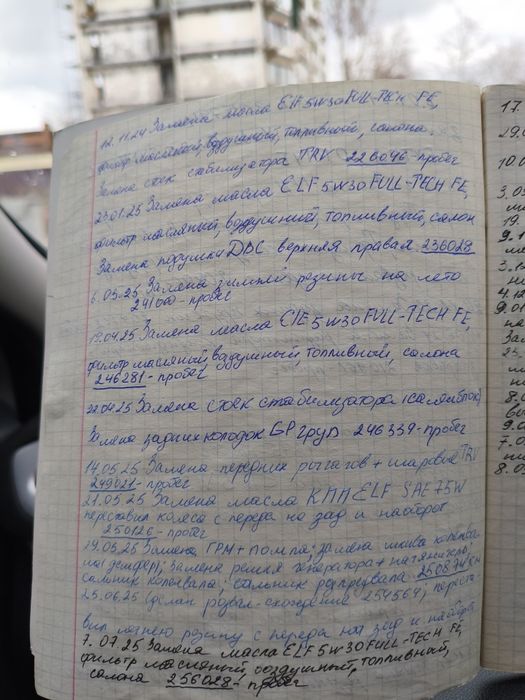 12.11.24 Замена масла Elf 5w30 FULL-TECH FE,
фильтр масляный, воздушный, топливный, салона.
Замена стоек стабилизатора TRW 226046 пробег
23.01.25 Замена масла ELF 5w30 FULL-TECH FE,
фильтр масляный, воздушный, топливный, салон
Замена подушки ДВС верхняя правая 236028
6.03.25 Замена зимней резины на лето
241000-пробег
19.04.25 Замена масла ELF 5w30 FULL-TECH FE,
фильтр масляный, воздушный, топливный, салона
246281-пробег
22.04.25 Замена стоек стабилизатора (салинблок)
Замена задних колодок GP груп 246339-пробег
14.05.25 Замена передних рычагов + шаровые TRW
249021-пробег
21.05.25 Замена масла КПП ELF SAE 75W
переставил колеса с переда на зад и наоборот
250126-пробег
29.05.25 Замена ГРМ + помпа; замена шкива коленвала
на демфер; замена ремня генератора + натяжитель;
сальник коленвала; сальник распредвала 250874 км
25.06.25 (делал развал-схождение 254564) перест-
вил летнею резину с переда на зад и наоборот
7.07.25 Замена масла ELF 5w30 FULL-TECH FE,
фильтр масляный, воздушный, топливный,
салона 256028-пробег
17.
10.0
3.0
19.
9.1
3.12
4.12
9.01
За
25
8.0
9.0
7.0
8.0